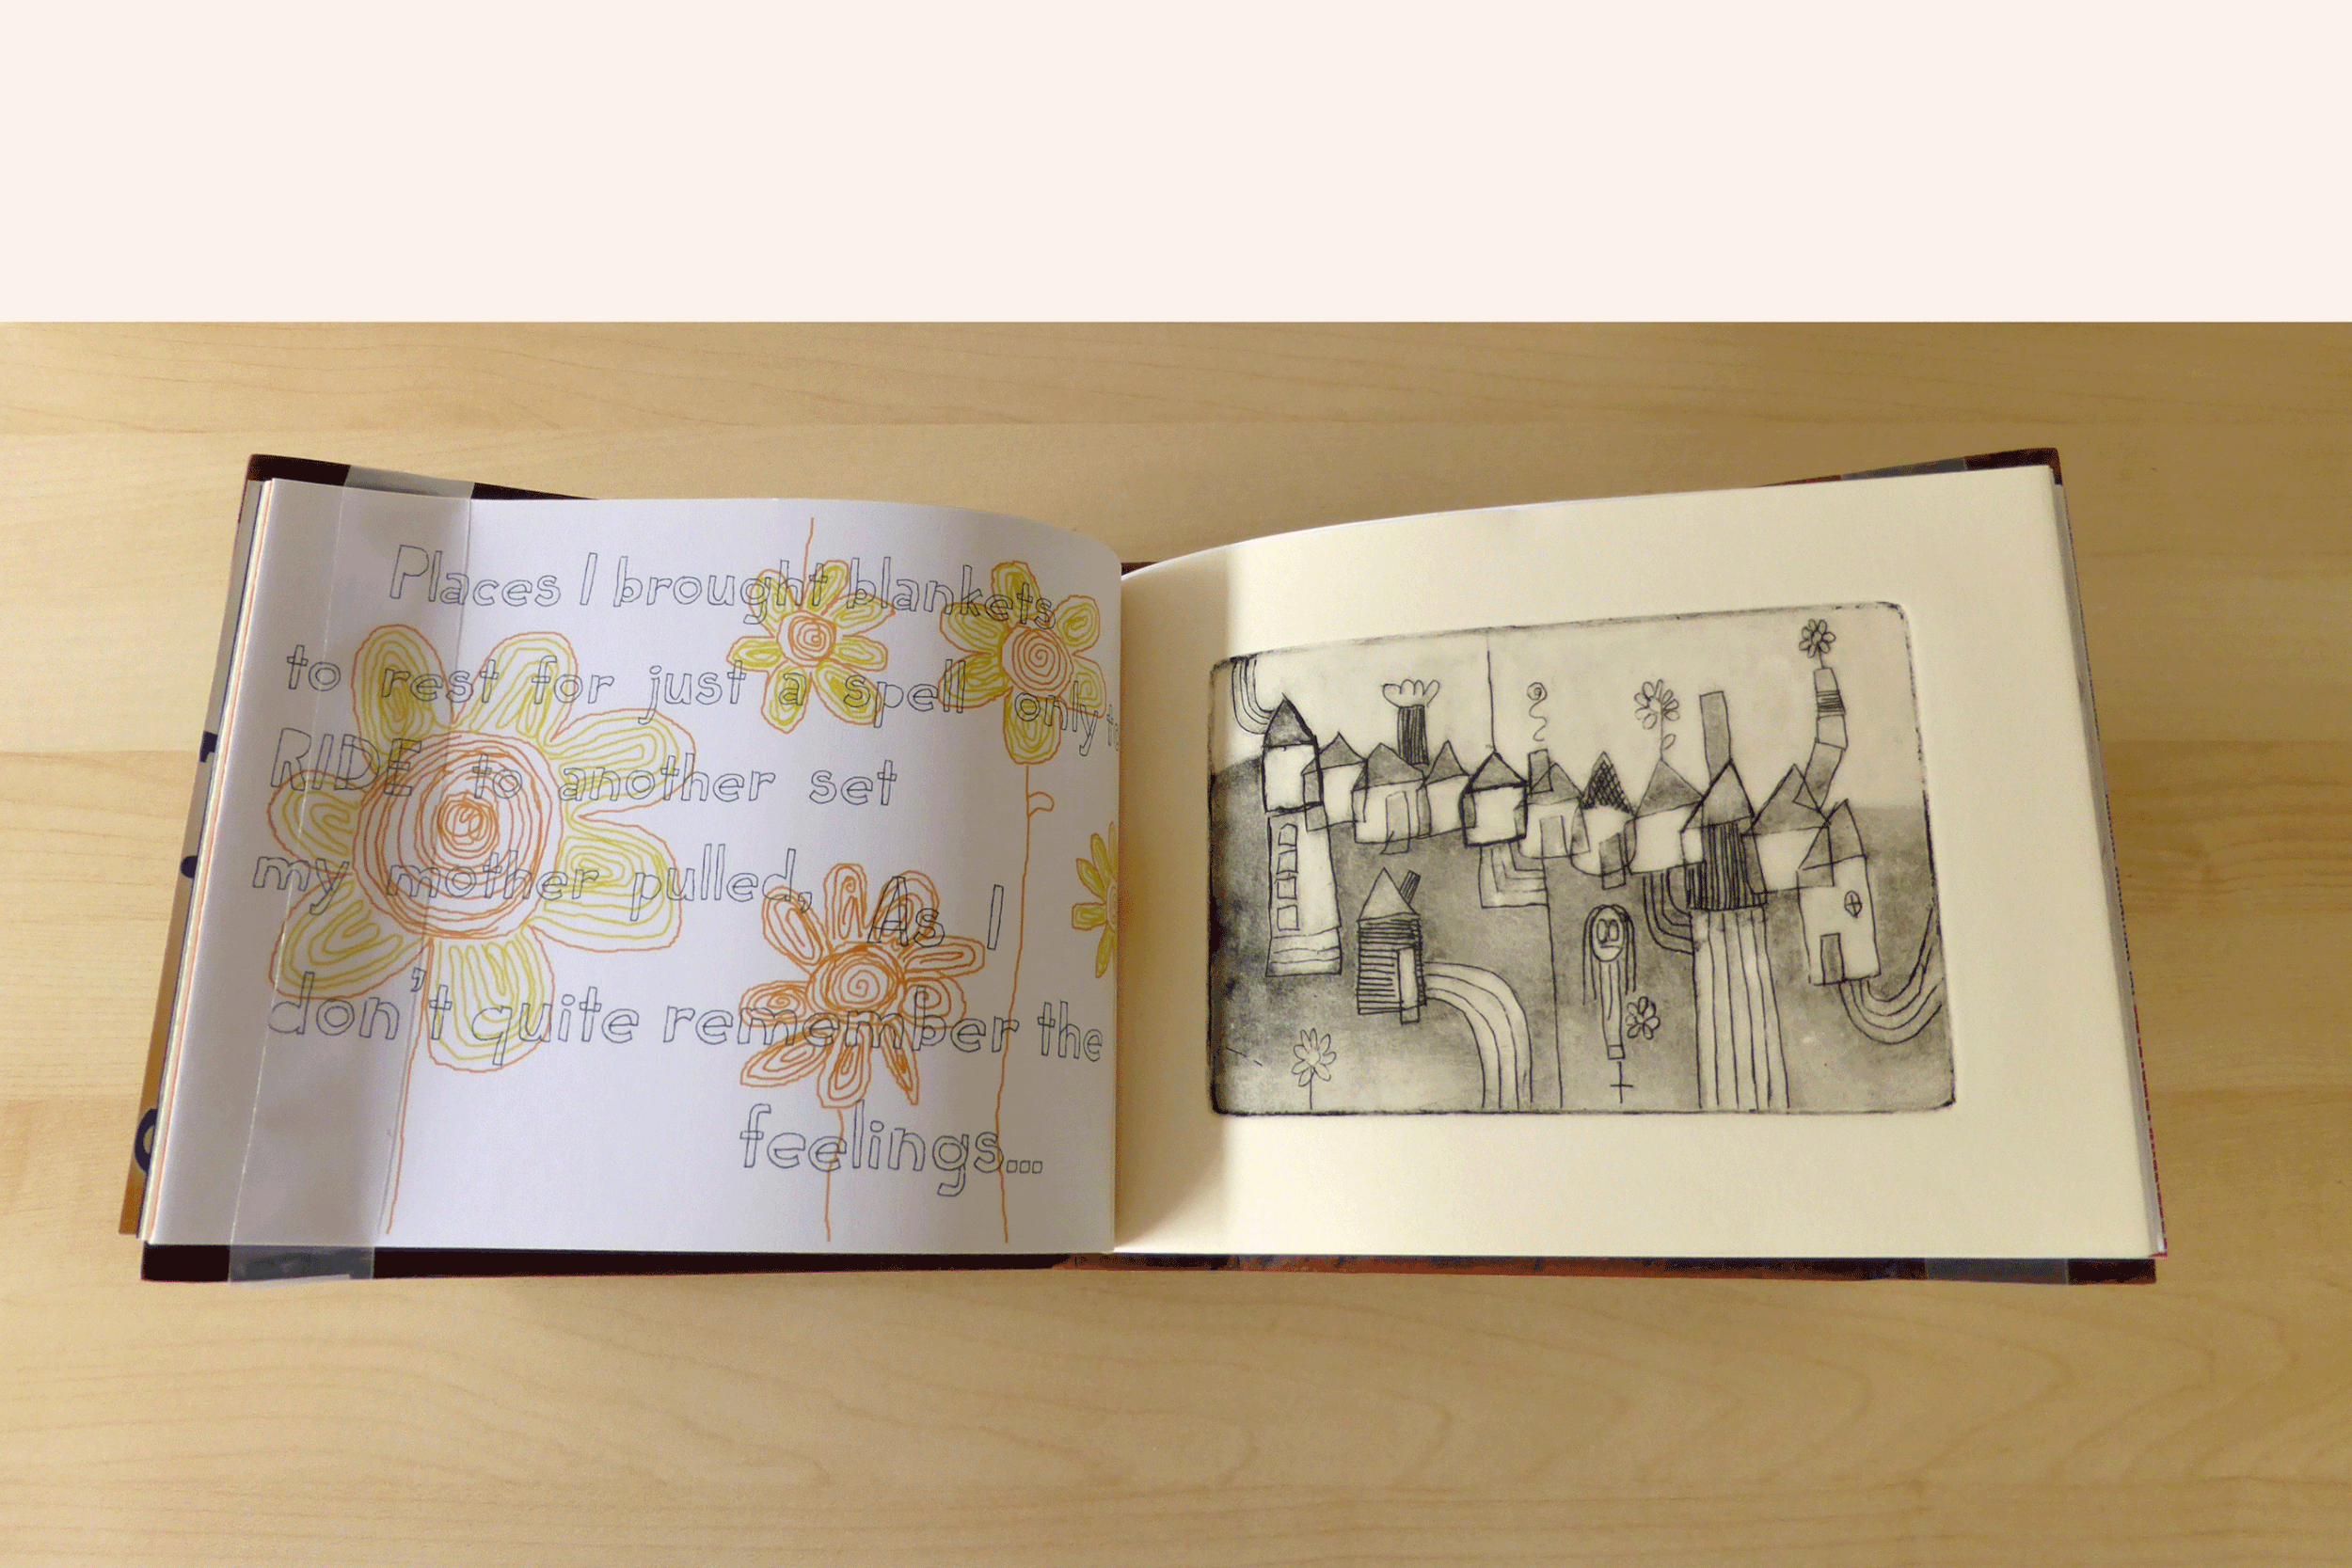 Places I brought blankets
to rest for just a spell only to
RIDE to another set
my mother pulled, As I
don't quite remember the
feelings...